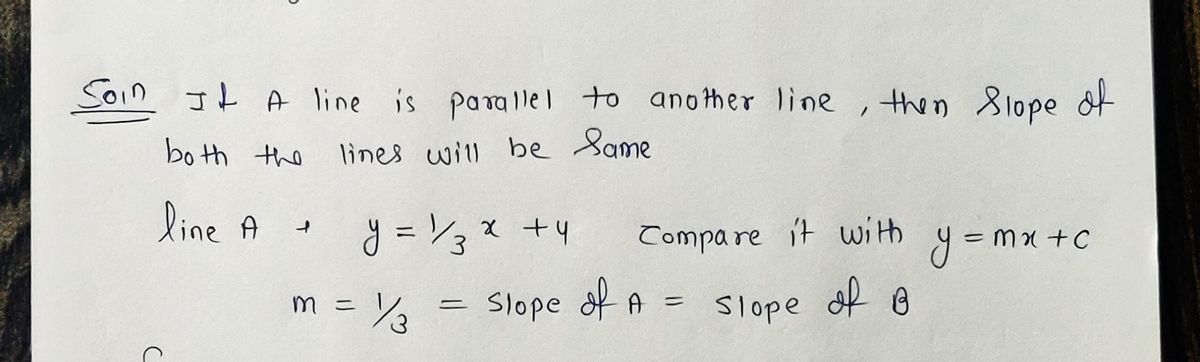 Soln If A line is parallel to another line , then Slope of
both the lines will be Same
line A → y = 1/3 x + 4 Compare it with y = mx + c
m = 1/3 = Slope of A = Slope of B